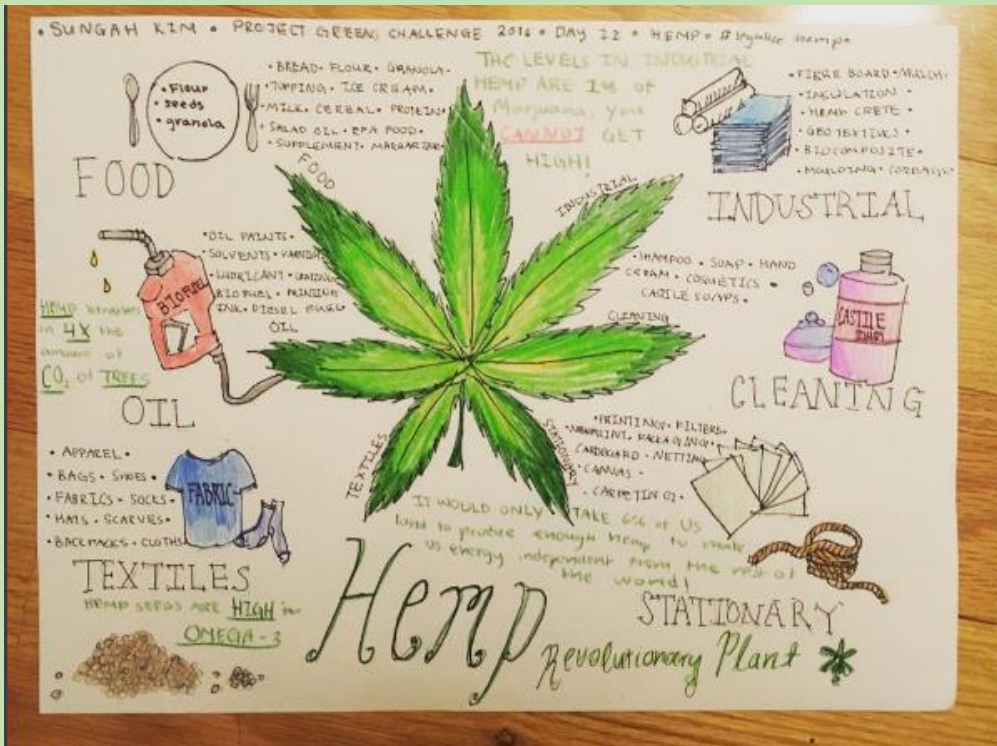 • SUNGAH KIM • PROJECT GREEN CHALLENGE 2016 • DAY 22 • HEMP • #legalize hemp •
• Flour
• seeds
• granola
FOOD
• BREAD • FLOUR • GRANOLA •
• TOPPING • ICE CREAM •
• MILK • CEREAL • PROTEIN
• SALAD OIL • FOOD •
• SUPPLEMENT • MARGARINE
THC LEVELS IN INDUSTRIAL
HEMP ARE 1% of
Marijuana, you
CANNOT GET
HIGH!
• FIBRE BOARD •
• INSULATION •
• HEMP CRETE •
• GEOTEXTILES •
• BIOCOMPOSITE •
• MOULDING • CORDAGE
INDUSTRIAL
FOOD
INDUSTRIAL
CLEANING
OIL
TEXTILES
STATIONARY
• OIL PAINTS •
• SOLVENTS • VARNISH
• LUBRICANT •
BIOFUEL • PRINTING
INK • DIESEL FUEL •
BIOFUEL
HEMP
in 4X the
amount of
CO2 of TREES
OIL
• SHAMPOO • SOAP • HAND
CREAM • COSMETICS •
CASTILE SOAPS •
CASTILE
SOAP
CLEANING
• APPAREL •
• BAGS • SHOES •
• FABRICS • SOCKS •
• HATS • SCARVES •
• BACKPACKS • CLOTHS
FABRIC
TEXTILES
• PRINTING • FILTERS •
• NEWSPRINT • PACKAGING •
CARDBOARD • NETTING
• CANVAS •
• CARPETING •
IT WOULD ONLY TAKE 6% of US
land to produce enough Hemp to make
us energy independent from the rest of
the world!
STATIONARY
HEMP SEEDS ARE HIGH in
OMEGA-3
Hemp
Revolutionary Plant